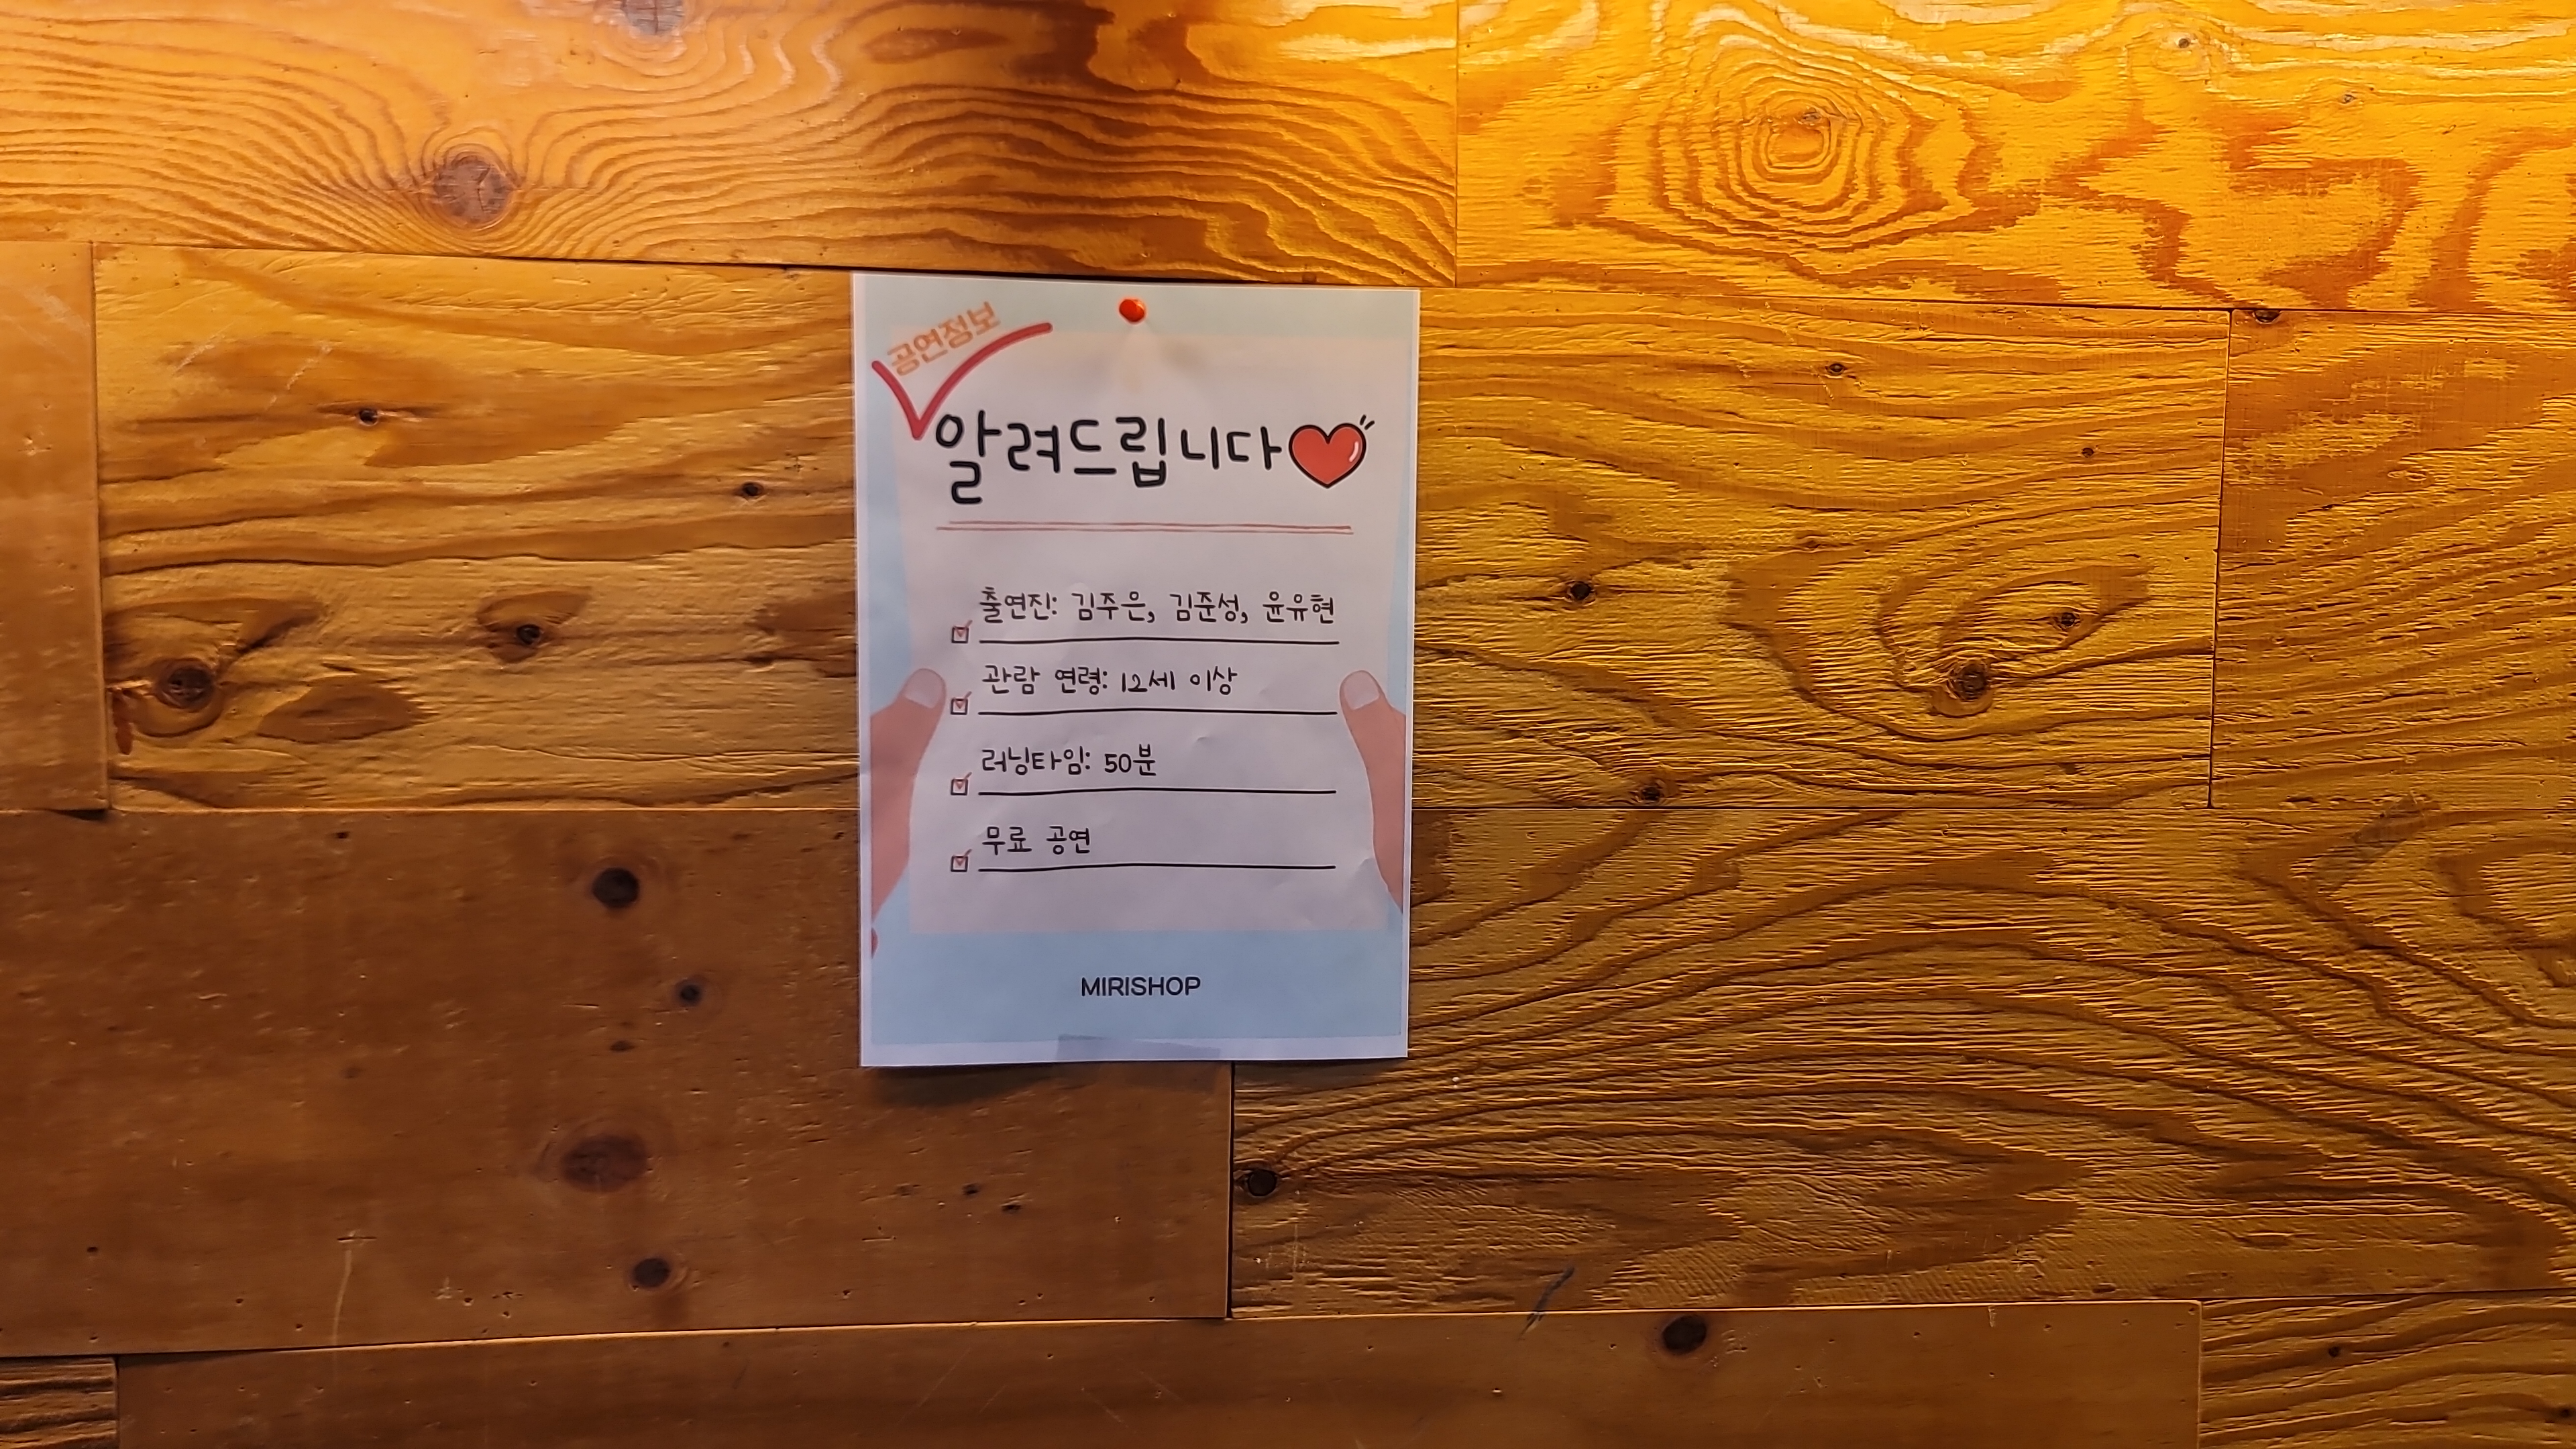 공연정보
알려드립니다
출연진: 김주은, 김준성, 윤유현
관람 연령: 12세 이상
러닝타임: 50분
무료 공연
MIRISHOP